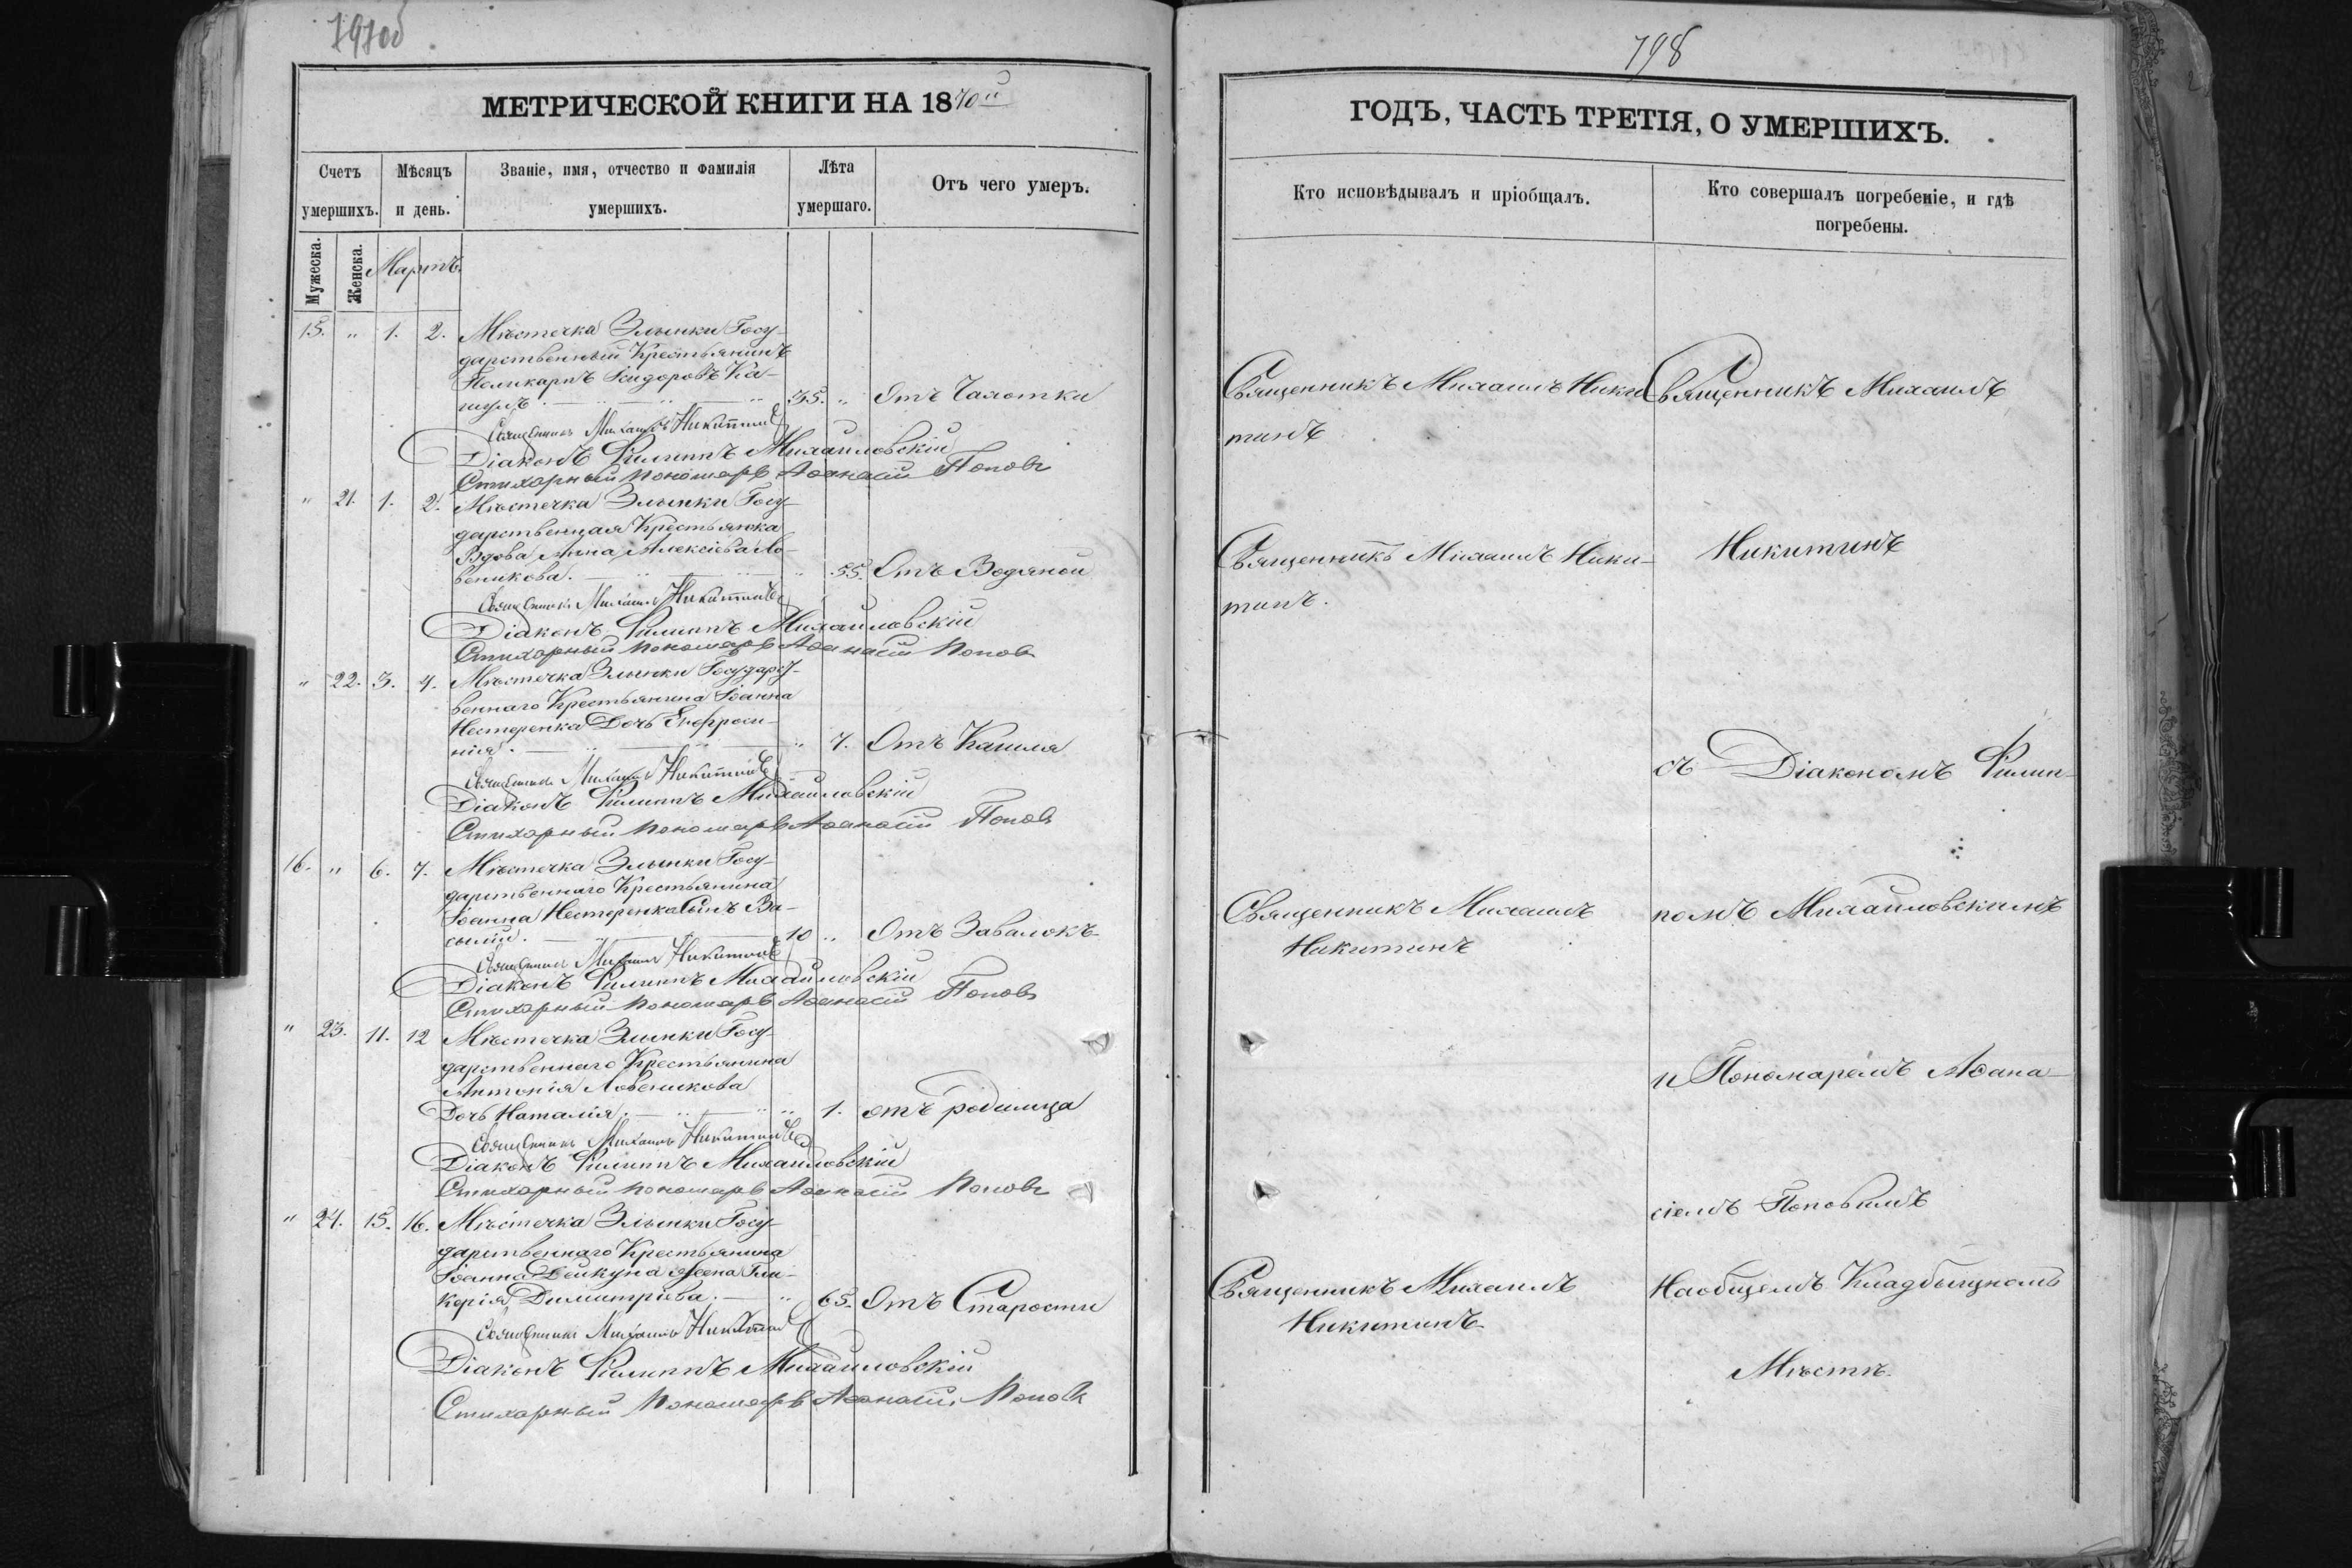 797об
МЕТРИЧЕСКОЙ КНИГИ НА 1870й
Счетъ умершихъ.
Мѣсяцъ и день.
Званіе, имя, отчество и фамилія умершихъ.
Лѣта умершаго.
Отъ чего умеръ.
Мужеска.
Женска.
Мартъ.
15. " 1. 2. Мѣстечка Злынки Госу-
дарственный Крестьянинъ
Поликарпъ Исидоровъ Ка-
35. " Отъ Чахотки
Священникъ Михаилъ Никитинъ
Діаконъ Филиппъ Михайловскій
Стихарный пономарь Аѳанасій Поповъ
" 21. 1. 2. Мѣстечка Злынки Госу-
дарственная Крестьянка
Вдова Анна Алексіева Ло-
веникова. " 55. Отъ Водяной
Священникъ Михаилъ Никитинъ
Діаконъ Филиппъ Михайловскій
Стихарный пономарь Аѳанасій Поповъ
" 22. 3. 4. Мѣстечка Злынки Государст-
веннаго Крестьянина Іоанна
Нестеренка Дочь Евфроси-
нія. " 7. Отъ Кашля
Священникъ Михаилъ Никитинъ
Діаконъ Филиппъ Михайловскій
Стихарный пономарь Аѳанасій Поповъ
16. " 6. 7. Мѣстечка Злынки Госу-
дарственнаго Крестьянина
Іоанна Нестеренка Сынъ Ва-
силій. 10 " Отъ Завалокъ
Священникъ Михаилъ Никитинъ
Діаконъ Филиппъ Михайловскій
Стихарный пономарь Аѳанасій Поповъ
" 23. 11. 12 Мѣстечка Злынки Госу-
дарственнаго Крестьянина
Антонія Ловеникова
Дочь Наталія. " 1. отъ родимца
Священникъ Михаилъ Никитинъ
Діаконъ Филиппъ Михайловскій
Стихарный пономарь Аѳанасій Поповъ
" 24. 15. 16. Мѣстечка Злынки Госу-
дарственнаго Крестьянина
Іоанна Дейкуна жена Гли-
керія Димитріева. " 65. Отъ Старости
Священникъ Михаилъ Никитинъ
Діаконъ Филиппъ Михайловскій
Стихарный пономарь Аѳанасій Поповъ
798
ГОДЪ, ЧАСТЬ ТРЕТІЯ, О УМЕРШИХЪ.
Кто исповѣдывалъ и пріобщалъ.
Кто совершалъ погребеніе, и гдѣ
погребены.
Священникъ Михаилъ Ники-
тинъ
Священникъ Михаилъ Ники-
тинъ.
Священникъ Михаилъ
Никитинъ
Священникъ Михаилъ
Никитинъ
Священникъ Михаилъ
Никитинъ
съ Діакономъ Филип-
помъ Михайловскимъ
и Пономаремъ Аѳана-
сіемъ Поповымъ
Наобщемъ Кладбищномъ
Мѣстѣ.